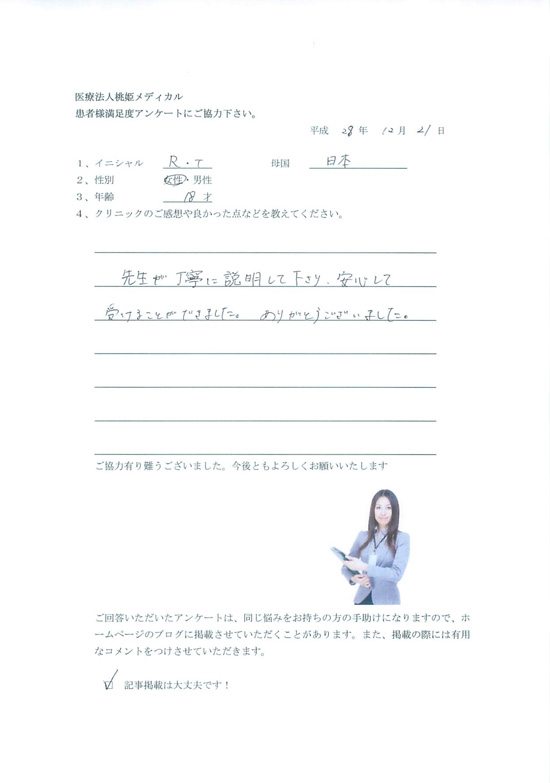 医療法人桃姫メディカル
患者様満足度アンケートにご協力下さい。
平成 28 年 12 月 21 日
1、イニシャル R・T 母国 日本
2、性別 女性・男性
3、年齢 18 才
4、クリニックのご感想や良かった点などを教えてください。
先生が丁寧に説明して下さり、安心して
受けることができました。 ありがとうございました。
ご協力有り難うございました。今後ともよろしくお願いいたします
ご回答いただいたアンケートは、同じ悩みをお持ちの方の手助けになりますので、ホ
ームページのブログに掲載させていただくことがあります。また、掲載の際には有用
なコメントをつけさせていただきます。
記事掲載は大丈夫です！